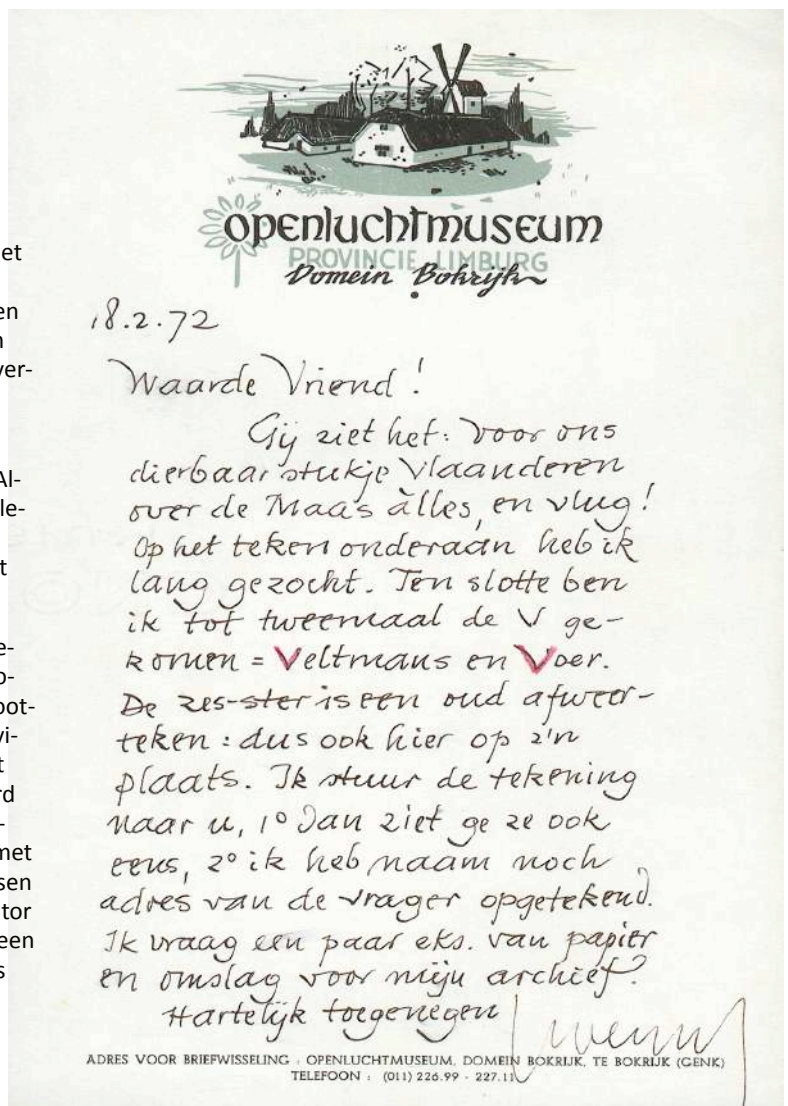 et
en
n
ver-
Al-
le-
t
e-
o-
oot-
vi-
t
rd
-
met
sen
tor
een
s
openluchtmuseum
PROVINCIE LIMBURG
Domein Bokrijk
18.2.72
Waarde Vriend!
Gij ziet het: voor ons
dierbaar stukje Vlaanderen
over de Maas àlles, en vlug!
Op het teken onderaan heb ik
lang gezocht. Ten slotte ben
ik tot tweemaal de V ge-
komen = Veltmans en Voer.
De zes-ster is een oud afweer-
teken: dus ook hier op z'n
plaats. Ik stuur de tekening
naar u, 1° dan ziet ge ze ook
eens, 2° ik heb naam noch
adres van de vrager opgetekend.
Ik vraag een paar eks. van papier
en omslag voor mijn archief.
Hartelijk toegenegen
ADRES VOOR BRIEFWISSELING : OPENLUCHTMUSEUM, DOMEIN BOKRIJK, TE BOKRIJK (GENK)
TELEFOON : (011) 226.99 - 227.11